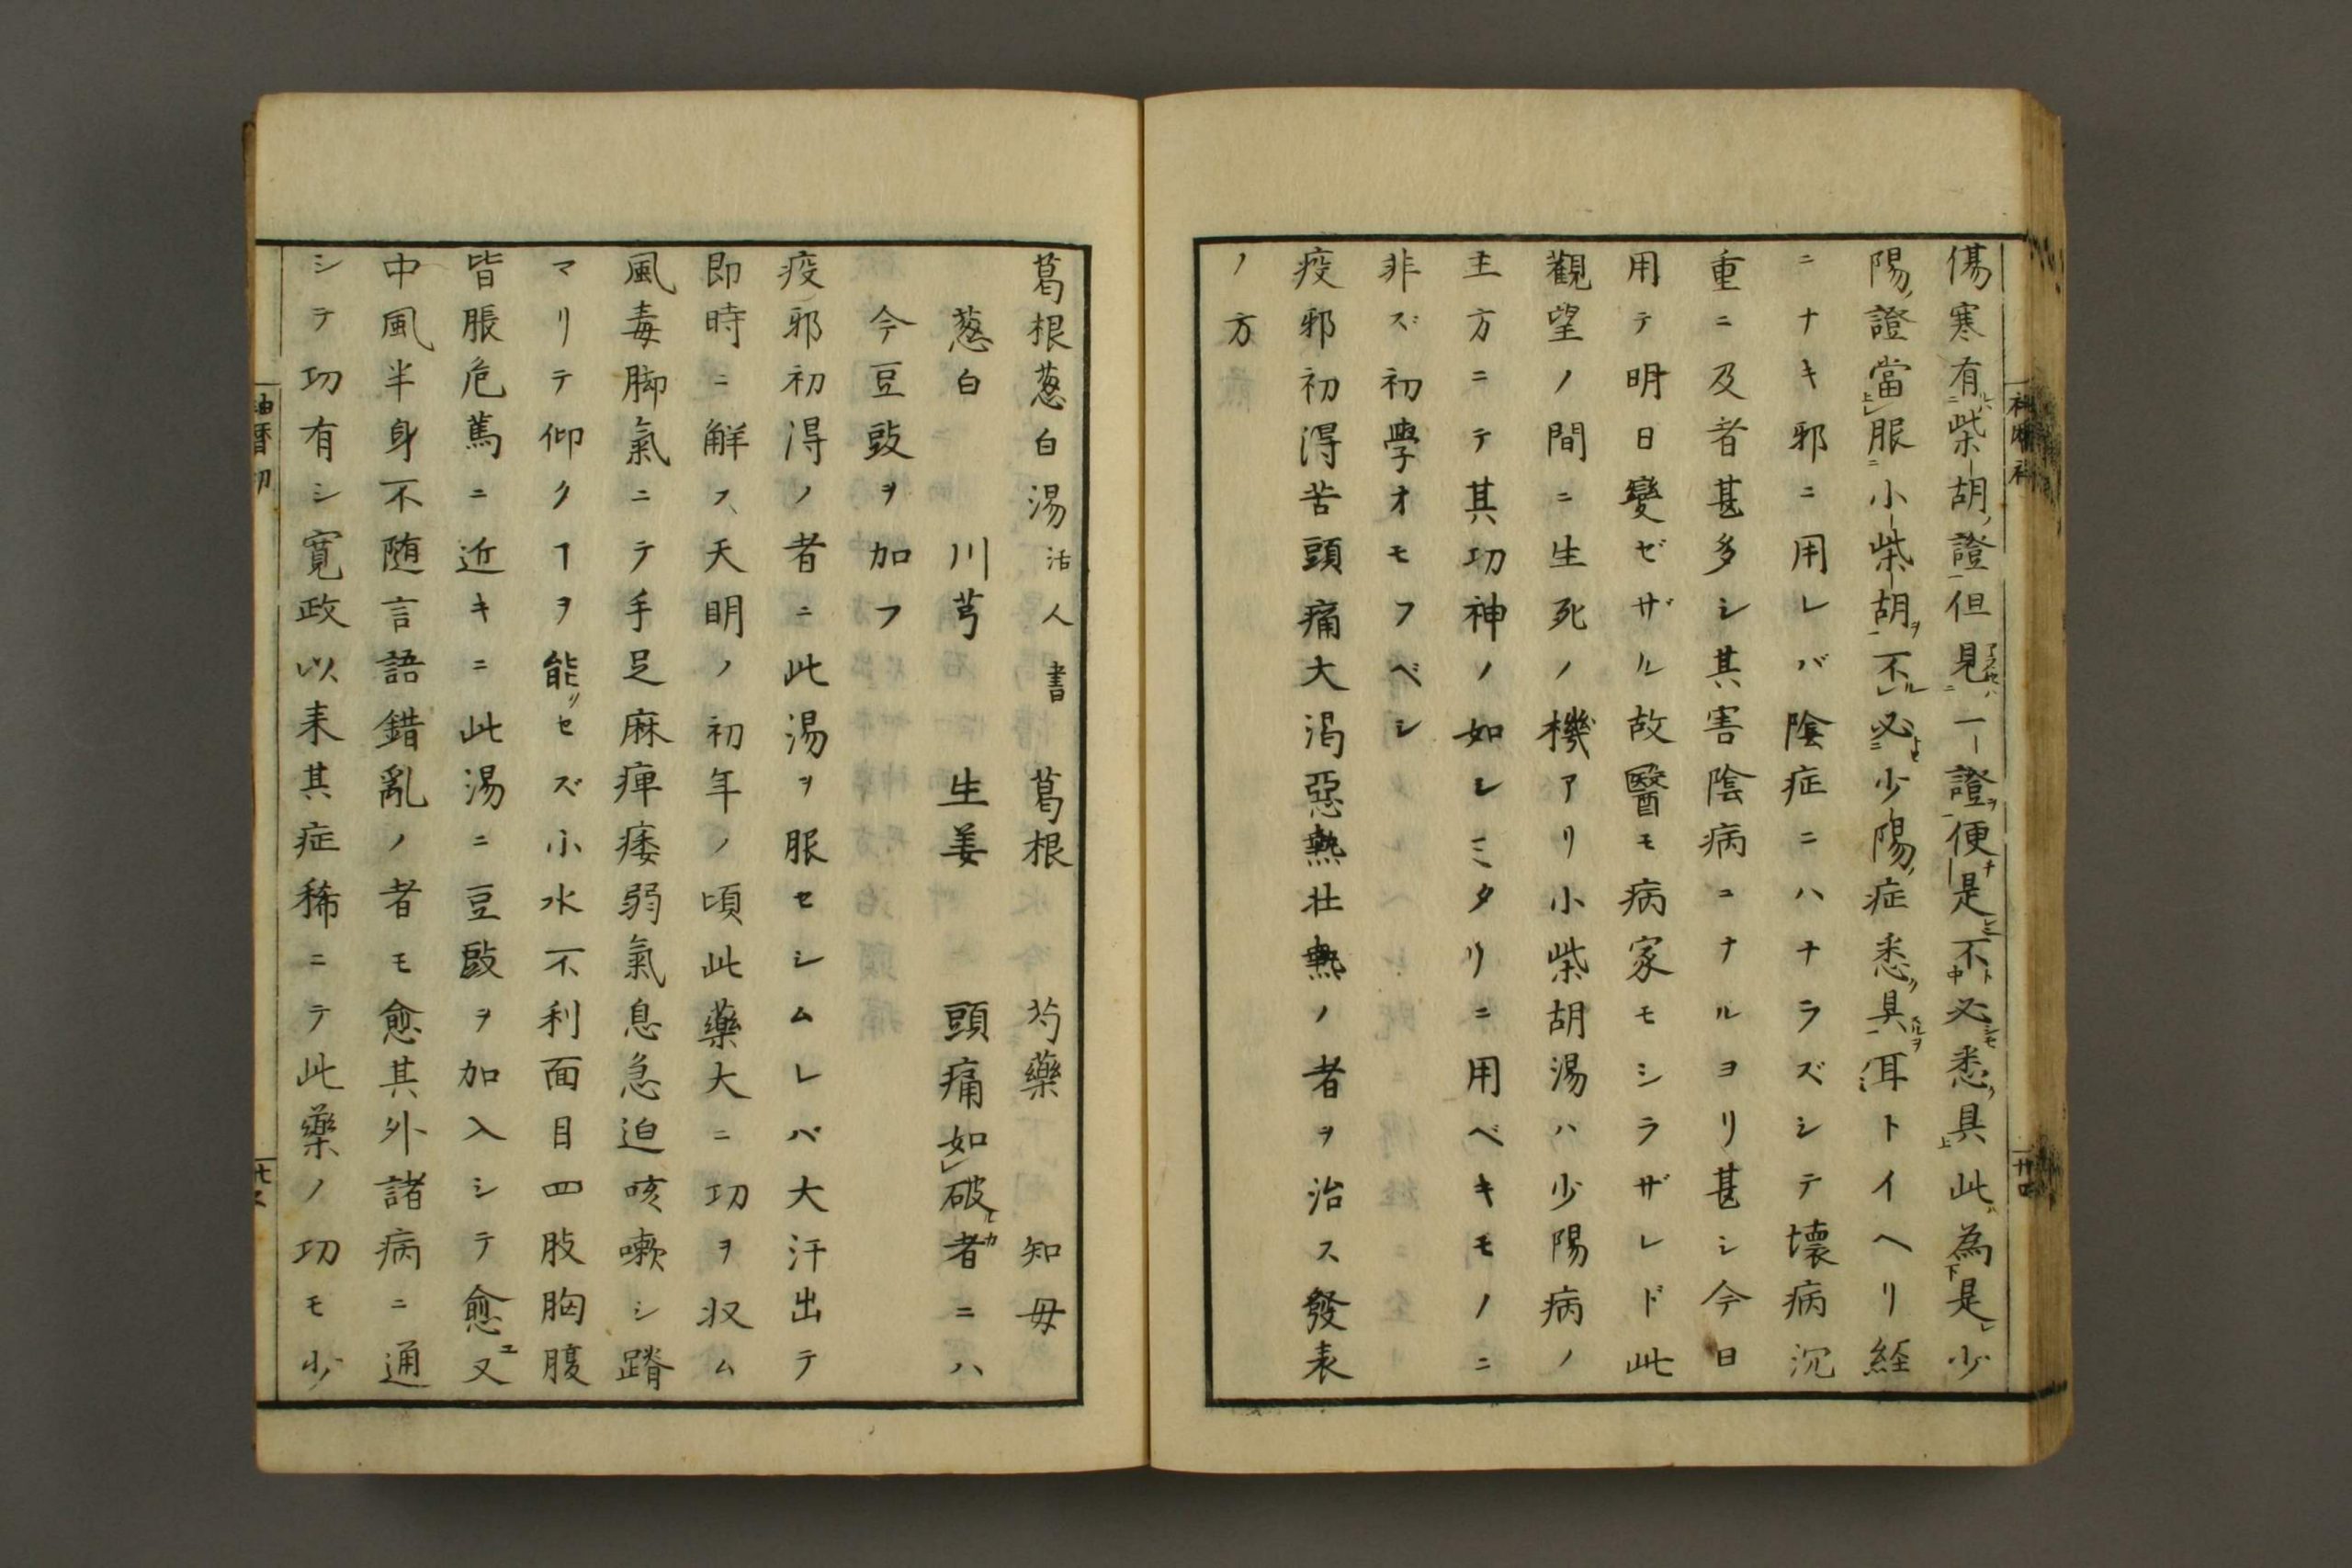 傷寒有柴胡證但見一證便是不必悉具此為是少
陽證當服小柴胡不必少陽症悉具耳トイヘリ経
ニナキ邪ニ用レバ陰症ニハナラズシテ壊病沉
重ニ及者甚多シ其害陰病ニナルヨリ甚シ今日
用テ明日變ゼザル故醫モ病家モシラザレド此
觀望ノ間ニ生死ノ機アリ小柴胡湯ハ少陽病ノ
主方ニテ其功神ノ如シミタリニ用ベキモノニ
非ズ初學オモフベシ
疫邪初得苦頭痛大渇惡熱壮熱ノ者ヲ治ス發表
ノ方
葛根葱白湯活人書　葛根　芍藥　知母
葱白　川芎　生姜　頭痛如破者ニハ
今豆豉ヲ加フ
疫邪初得ノ者ニ此湯ヲ服セシムレバ大汗出テ
即時ニ解ス天明ノ初年ノ頃此藥大ニ功ヲ収ム
風毒脚氣ニテ手足麻痺痿弱氣息急迫咳嗽シ蹐
マリテ仰クヿヲ能セズ小水不利面目四肢胸腹
皆脹危篤ニ近キニ此湯ニ豆豉ヲ加入シテ愈又
中風半身不随言語錯亂ノ者モ愈其外諸病ニ通
シテ功有シ寛政以来其症稀ニテ此藥ノ功モ少